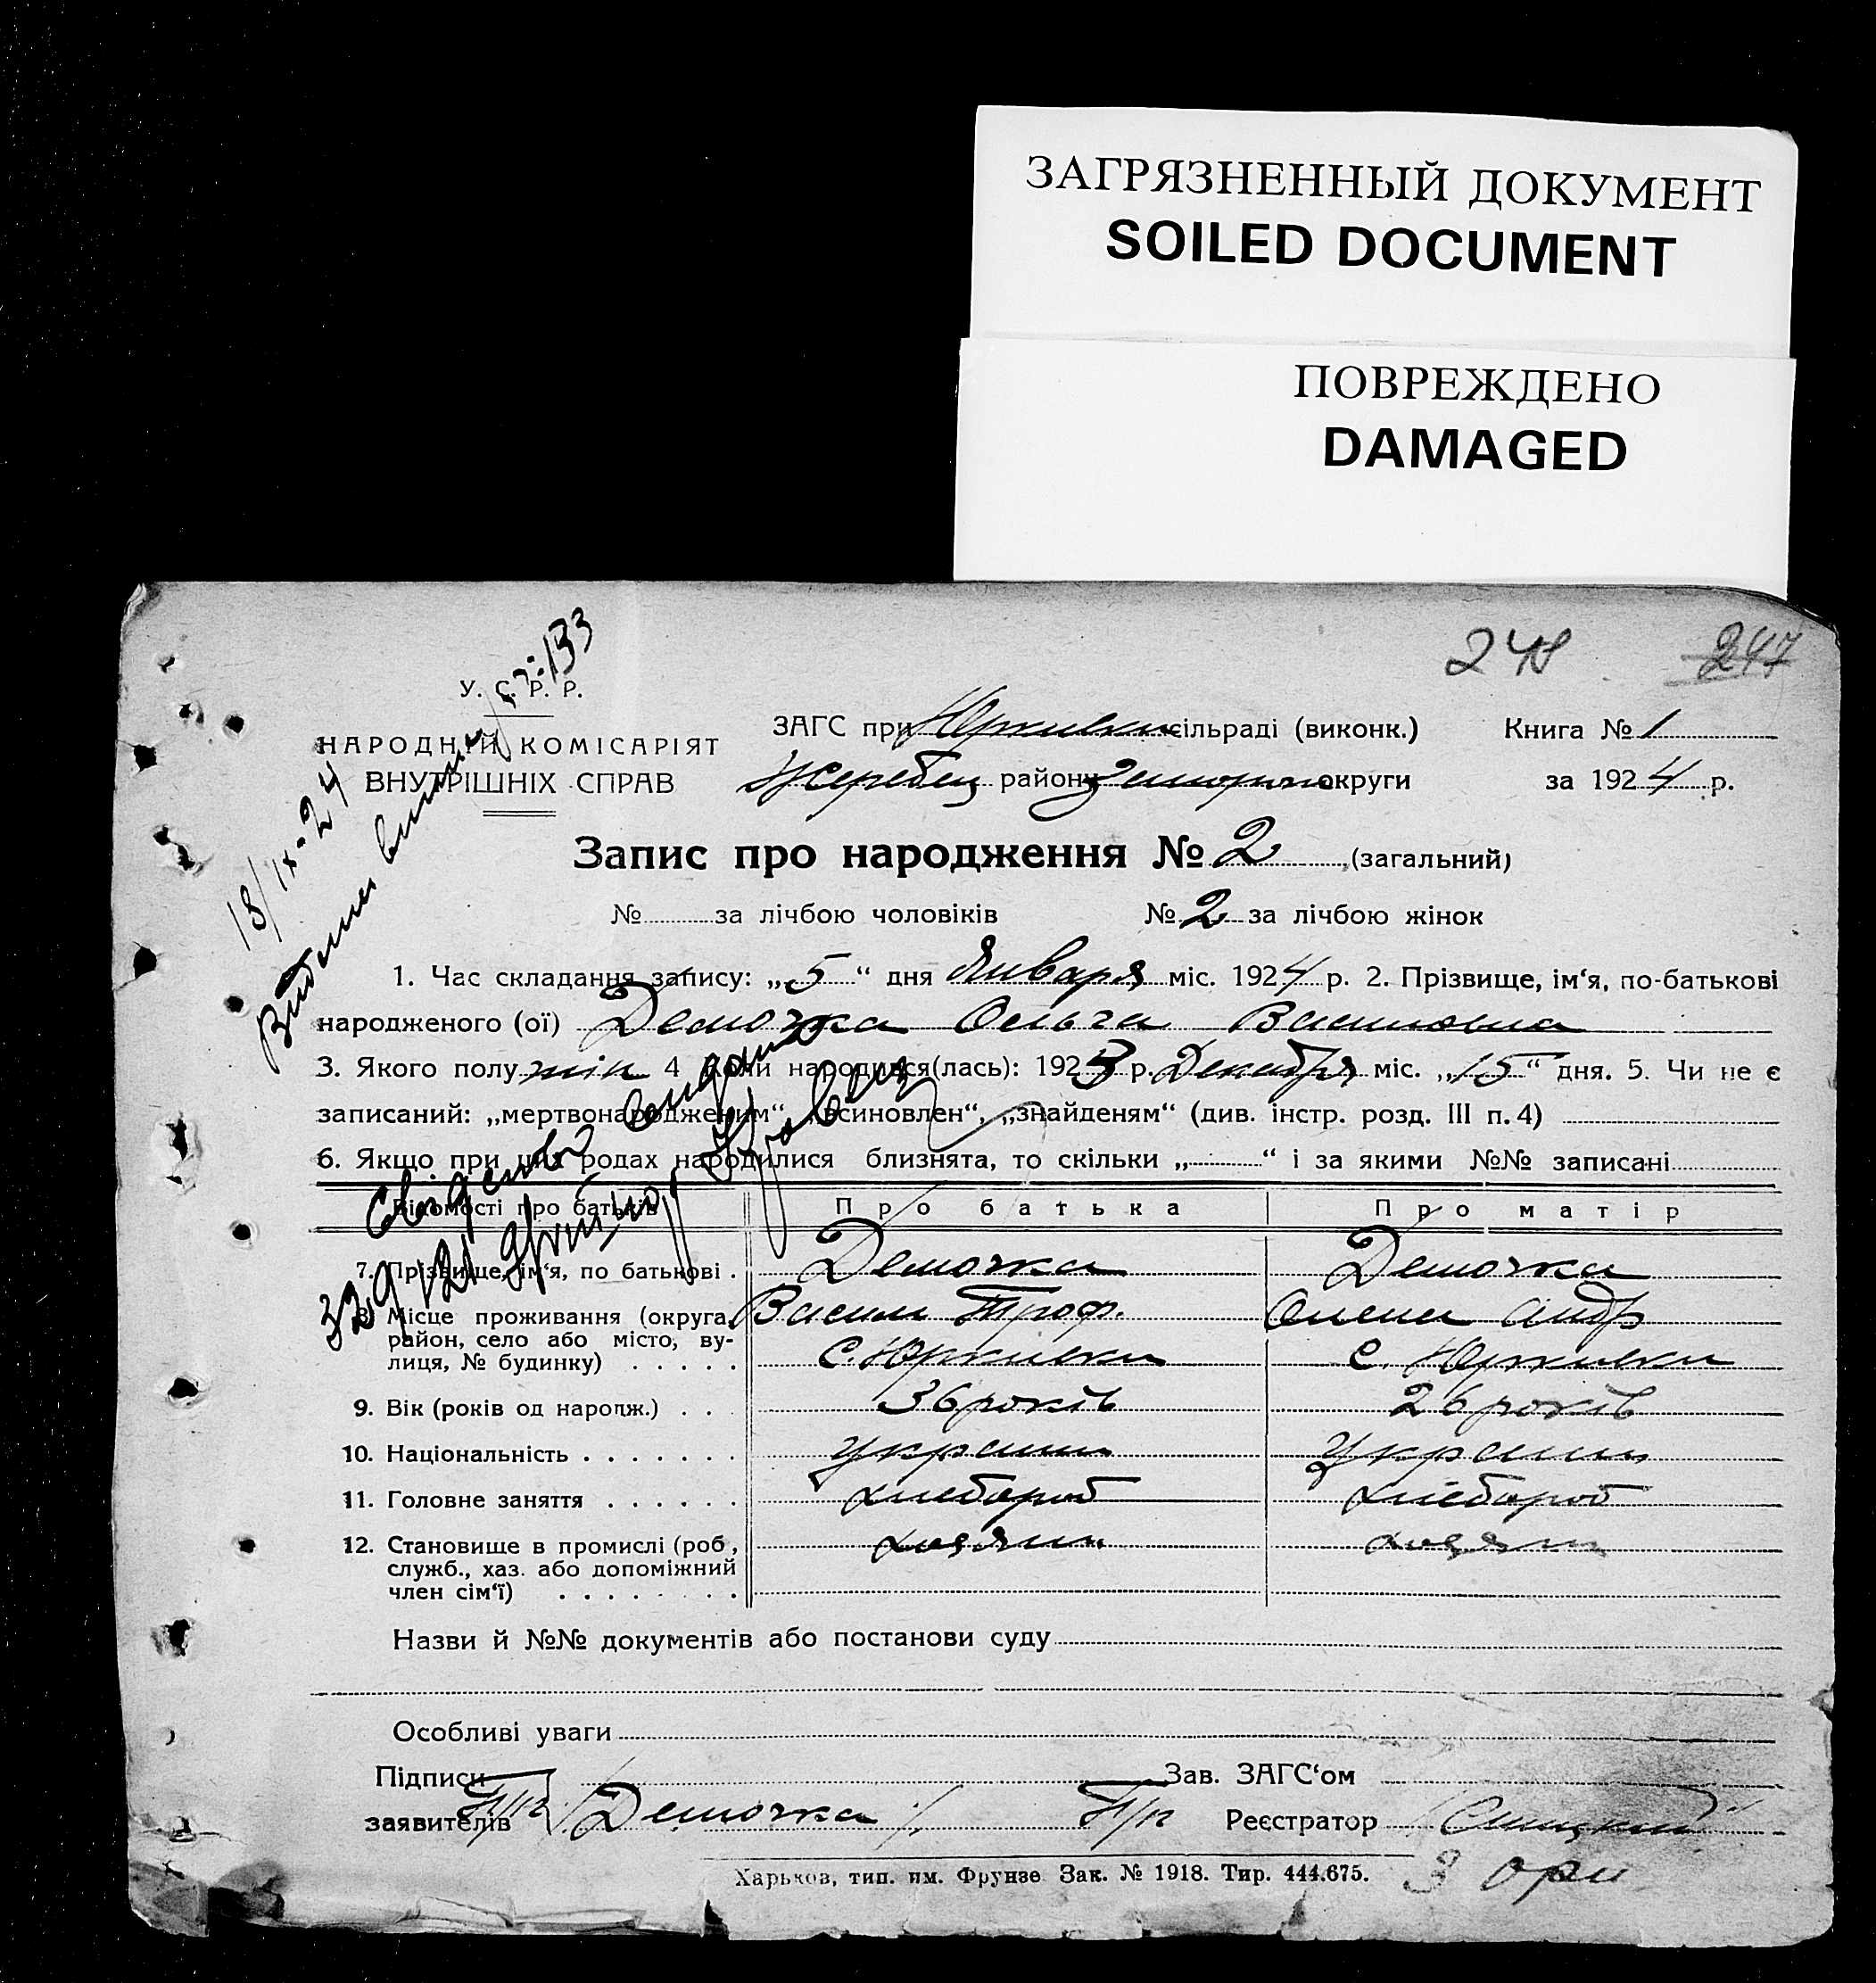 ЗАГРЯЗНЕННЫЙ ДОКУМЕНТ
SOILED DOCUMENT
ПОВРЕЖДЕНО
DAMAGED
248 247
У. С. Р. Р.
НАРОДНІЙ КОМІСАРІЯТ
ВНУТРІШНІХ СПРАВ
ЗАГС при Юркивки сільраді (виконк.) Книга № 1
Жеребец району округи за 1924 р.
18/IX-24
Запис про народження № 2 (загальний)
№ за лічбою чоловіків № 2 за лічбою жінок
1. Час складання запису: „5“ дня Января міс. 1924 р. 2. Прізвище, ім‘я, по-батькові
народженого (ої) Демочка Ольга
3. Якого полу жін 4 Коли народився(лась): 1923 р. Декабря міс. „15“ дня. 5. Чи не є
записаний: „мертвонародженим“, „всиновлен“, „знайденям“ (див. інстр. розд. III п. 4)
6. Якщо при цих родах народилися близнята, то скільки „ “ і за якими №№ записані
Відомості про батьків Про батька Про матір
7. Прізвище, ім‘я, по батькові . Демочка Демочка
Васили Троф. Олена Андр
8. Місце проживання (округа, район, село або місто, ву-
лиця, № будинку) . . . . . с. Юркивки с. Юркивки
9. Вік (років од народж.) . . . 36 років 26 років
10. Національність . . . . . . . украин украин
11. Головне заняття . . . . . . хлебороб хлебороб
12. Становище в промислі (роб., хозяин хозяин
служб., хаз. або допоміжний
член сім‘ї) . . . . . . .
Назви й №№ документів або постанови суду
Особливі уваги
Підписи Зав. ЗАГС‘ом
заявителів Демочка П/п Реєстратор
Харьков, тип. им. Фрунзе Зак. № 1918. Тир. 444.675.